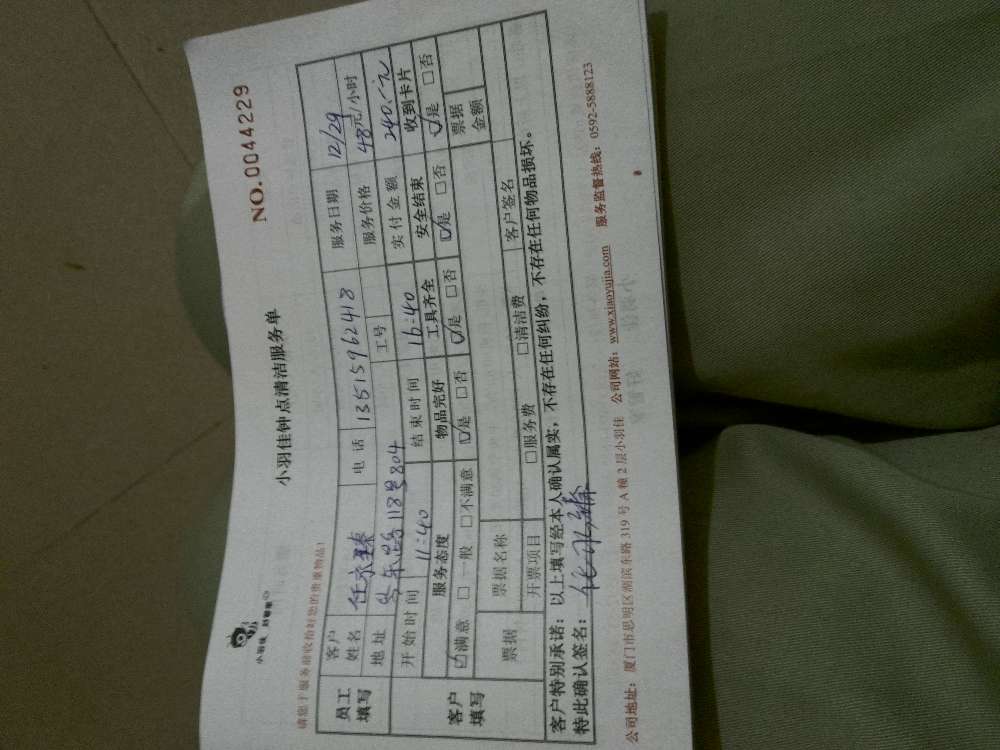 小羽佳钟点清洁服务单
NO.0044229
请您于服务前收拾好您的贵重物品！
员工填写 客户姓名 任永 电话 13515962418 服务日期 12/29
地址 东路118号804 工号 服务价格 48元/小时
客户填写 开始时间 11:40 结束时间 16:40 实付金额 240.-元
服务态度 物品完好 工具齐全 安全结束 收到卡片
☑满意 □一般 □不满意 ☑是 □否 ☑是 □否 ☑是 □否 ☑是 □否
票据 票据名称 票据金额
开票项目 □服务费 □清洁费 客户签名
客户特别承诺：以上填写经本人确认属实，不存在任何纠纷，不存在任何物品损坏。
特此确认签名：
公司地址：厦门市思明区湖滨东路319号A梯2层小羽佳 公司网站：www.xiaoyujia.com 服务监督热线：0592-5888123